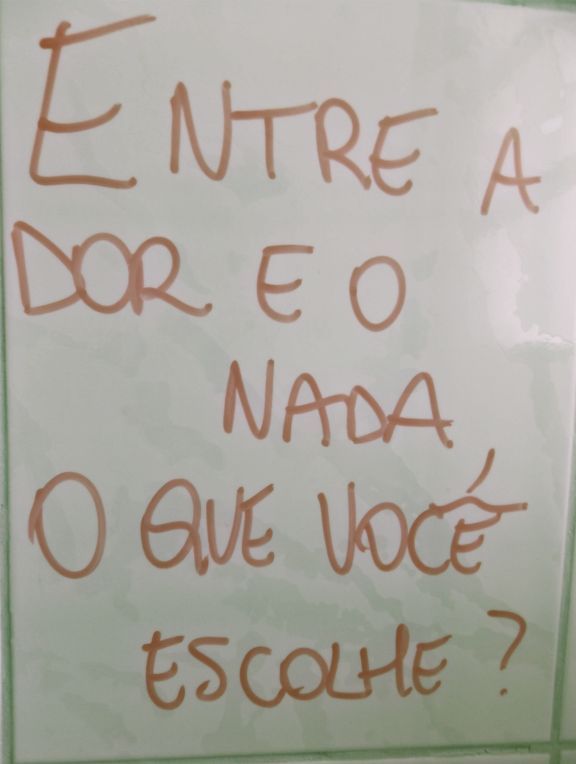 ENTRE A
DOR E O
NADA
O QUE VOCÊ
ESCOLHE?